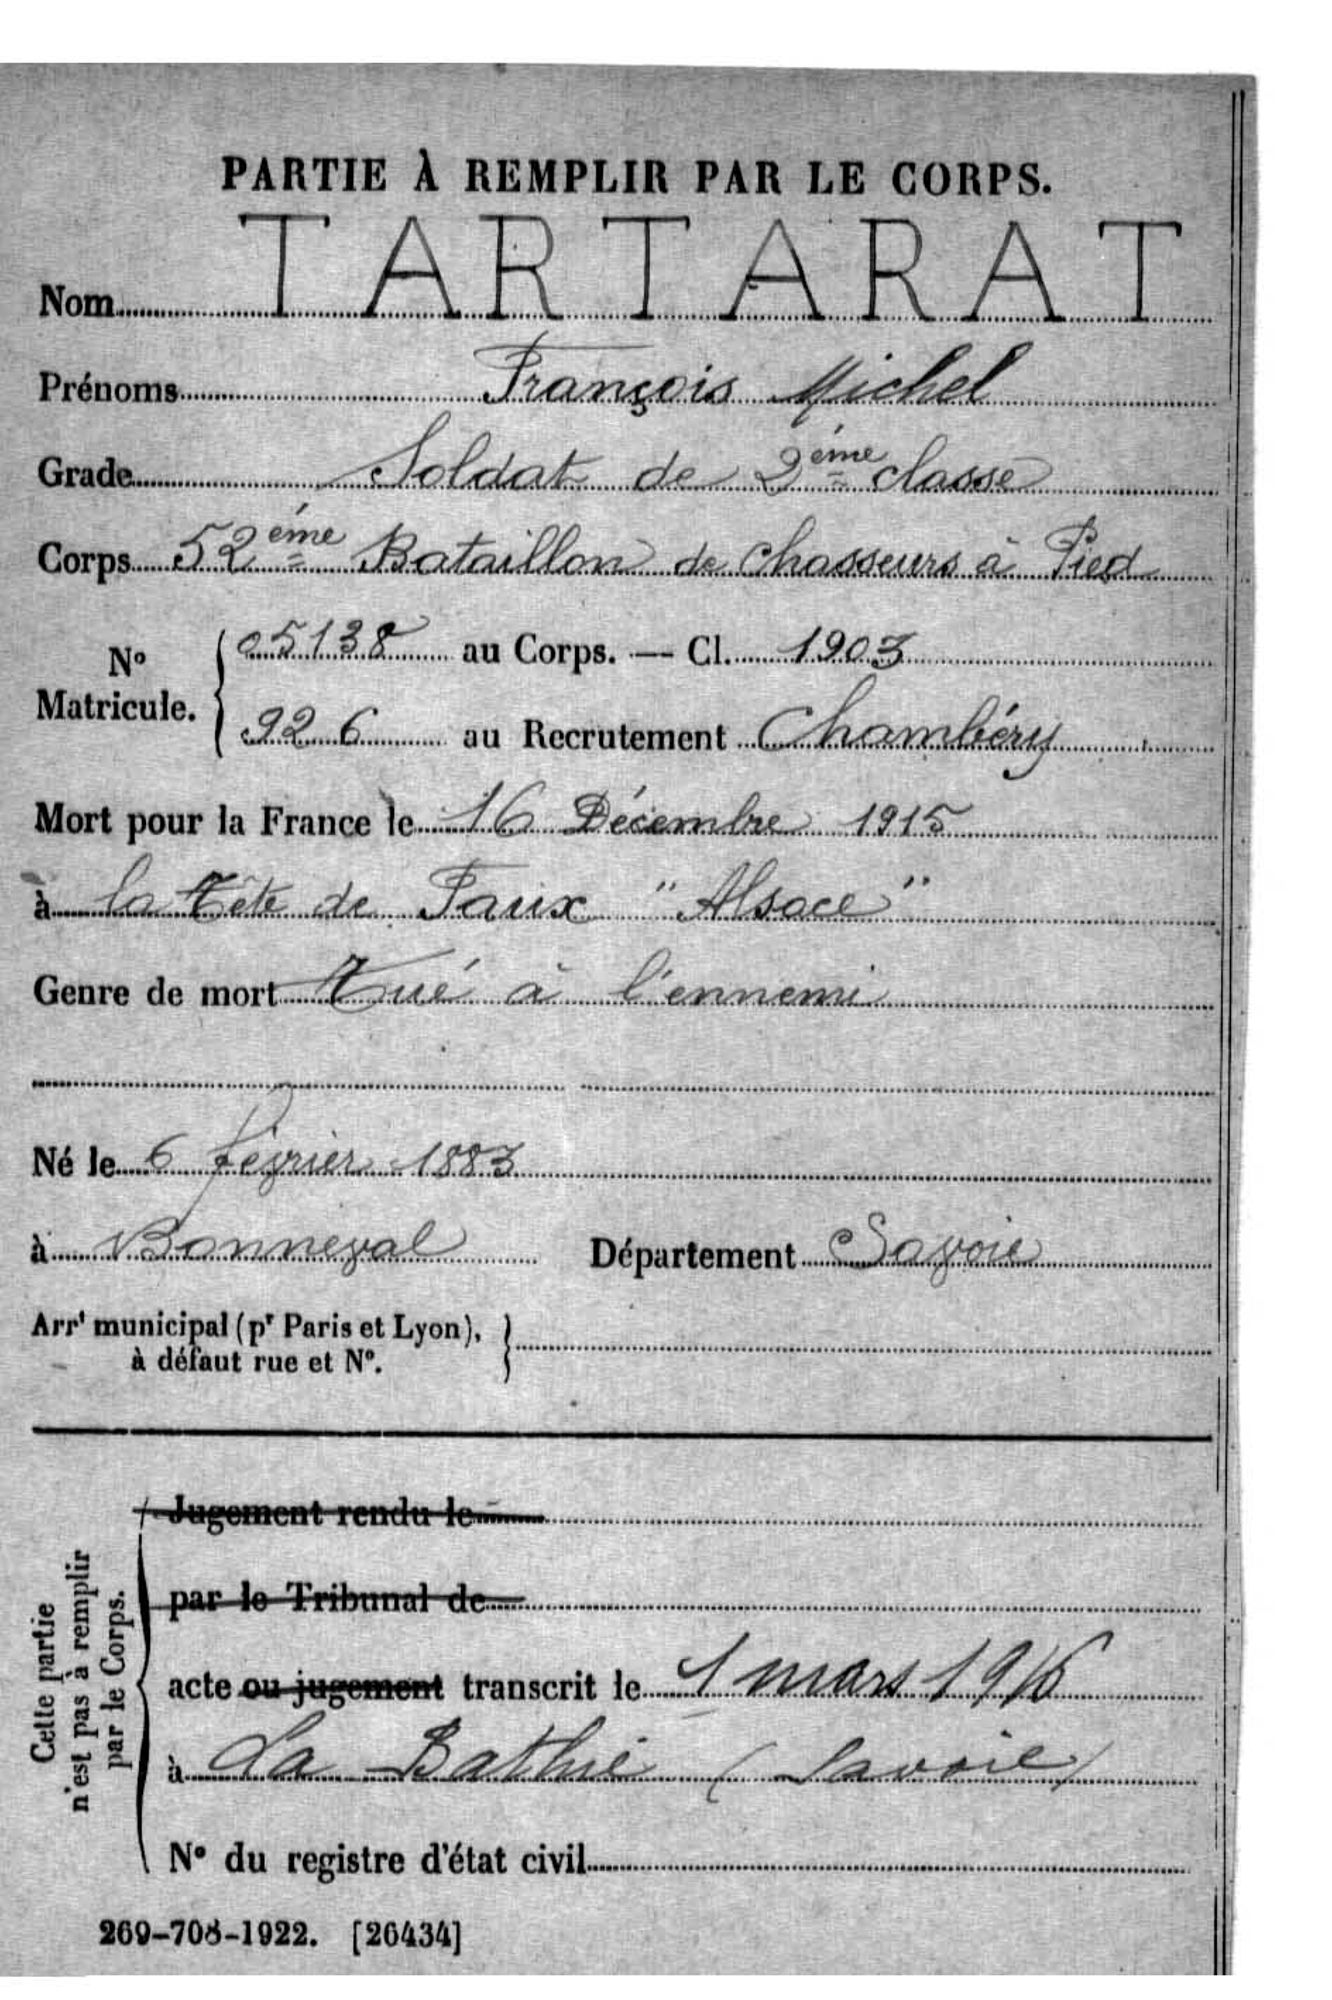 PARTIE À REMPLIR PAR LE CORPS.
Nom TARTARAT
Prénoms François Michel
Grade Soldat de 2ème classe
Corps 52ème Bataillon de chasseurs à Pied
No Matricule. { 05138 au Corps. — Cl. 1903
926 au Recrutement Chambéry
Mort pour la France le 16 Décembre 1915
à la Tête de Faux "Alsace"
Genre de mort Tué à l'ennemi
Né le 6 février 1883
à Bonneval Département Savoie
Arrt municipal (pr Paris et Lyon),
à défaut rue et No.
Cette partie
n'est pas à remplir
par le Corps.
Jugement rendu le
par le Tribunal de
acte ou jugement transcrit le 1 mars 1916
à La Bathie (Savoie)
No du registre d'état civil
269-708-1922. [26434]